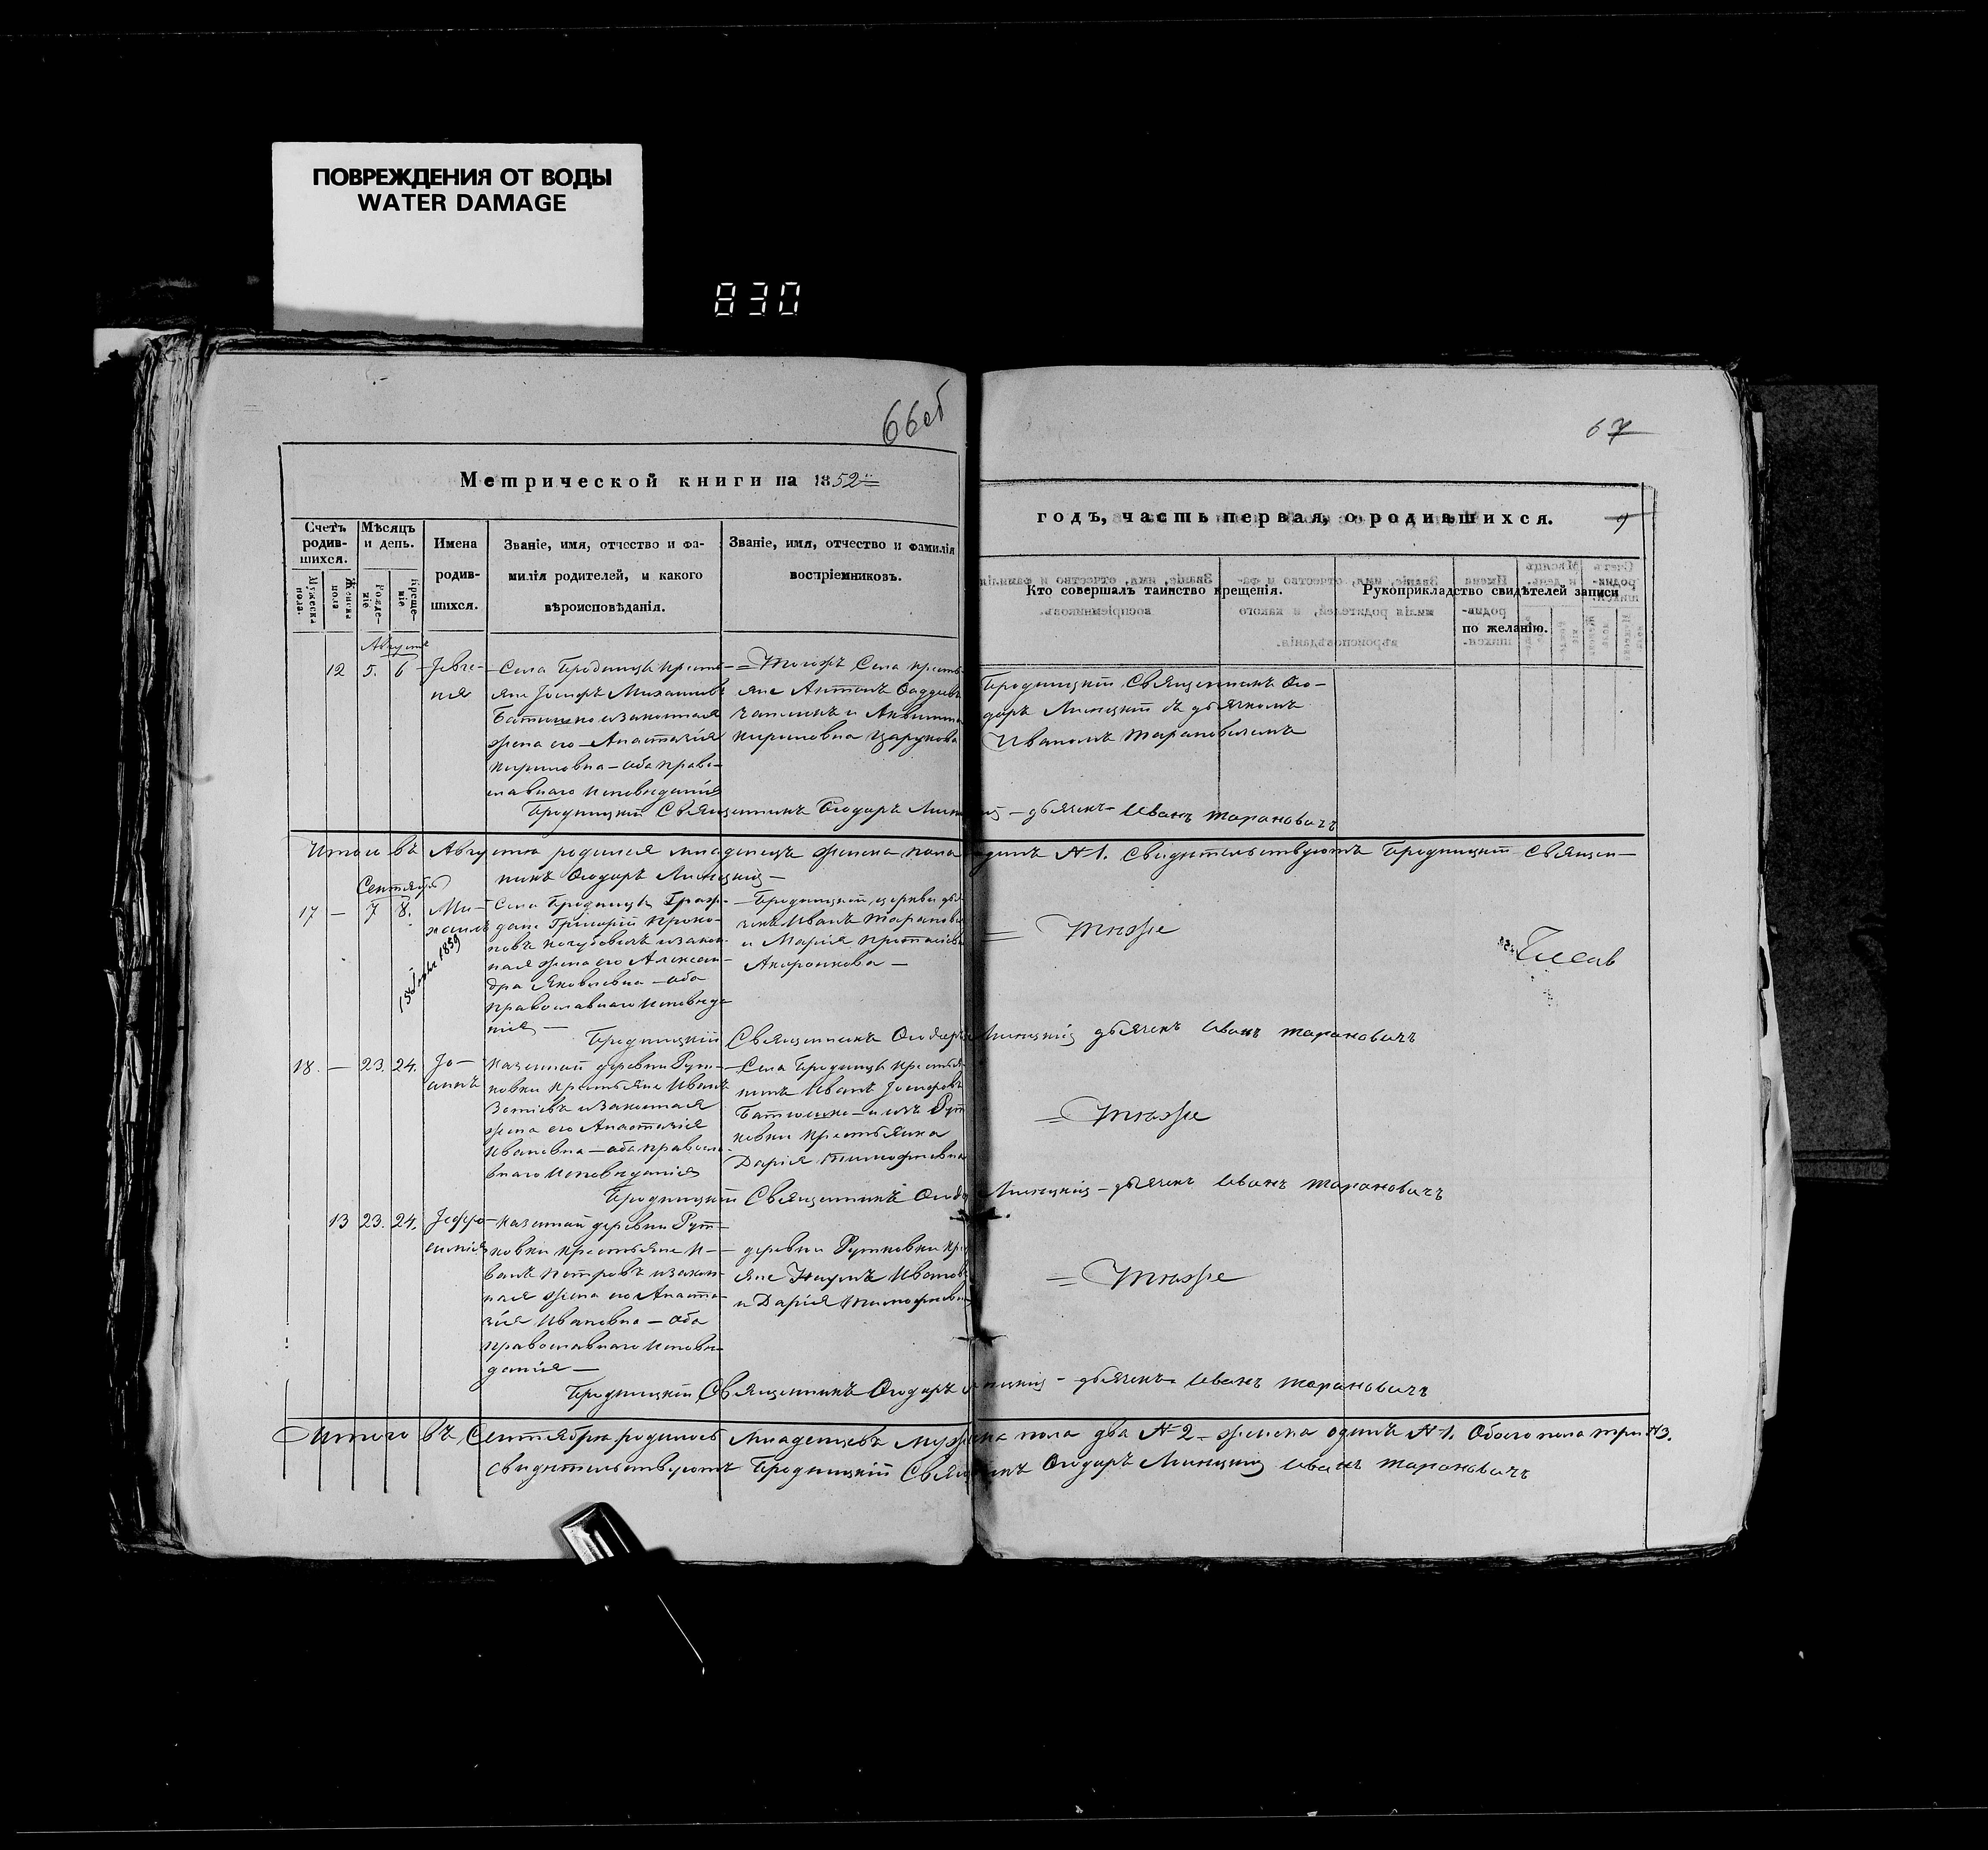 ПОВРЕЖДЕНИЯ ОТ ВОДЫ
WATER DAMAGE
830
66об
67
Метрической книги на 1852
годъ, часть первая, о родившихся.
Счетъ родив-шихся.
Мужеска пола.
Женска пола
Мѣсяцъ и день.
Рожде-ніе
Креще-ніе
Имена родив-шихся.
Званіе, имя, отчество и фа-
милія родителей, и какого
вѣроисповѣданія.
Званіе, имя, отчество и фамилія
воспріемниковъ.
Кто совершалъ таинство крещенія.
Рукоприкладство свидѣтелей записи
по желанію.
Августа
12 5. 6
Села Бродницы
жена его Анастасія
Кириловна – оба право-
славнаго исповѣданія
Тогожъ Села
Бродницкій Священникъ Ѳео-
доръ Линицкій съ дьячкомъ
Иваномъ Тарановичемъ
Бродницкій Священникъ Ѳеодоръ – дьячекъ Иванъ Тарановичъ
Итого въ Августѣ родился младенецъ женска пола одинъ №1. Свидѣтельствуютъ Бродницкій Священ-
никъ Ѳеодоръ Линицкій –
Сентябрь
17 – 7 8. Ми-
хаилъ
Села Бродницы Граж-
данe Григорій Проко-
жена его Алексан-
дра Яковлевна – оба
православнаго исповѣда
нія –
Бродницкій церкви дья
чекъ Иванъ Таранович
и Марія
= Тиже
1859
Бродницкій Священникъ Ѳеодоръ Линицкій дьячекъ Иванъ Тарановичъ
18. – 23. 24. Іо-
аннъ
Казенной деревни Рут-
ковки крестьяне Иванъ
и законная
жена его Анастасія
Ивановна – оба правосла-
внаго исповѣданія
Села Бродницы крестья-
нинъ Иванъ Іосифовъ
ковки крестьянка
Дарія Тимофѣевна
= Тиже
Бродницкій Священникъ Ѳеодо Линицкій – дьячекъ Иванъ Тарановичъ
13 23. 24. Іефро-
синія
Казенной деревни Рут-
ковки крестьяне И-
ванъ Петровъ и закон-
ная жена его Анаста-
зія Ивановна – оба
православнаго исповѣ-
данія –
деревни Рутковки кре
яне Наумъ Ивановъ
и Дарія Тимофѣевна
= Тиже
Бродницкій Священникъ Ѳеодоръ Линицкій – дьячекъ Иванъ Тарановичъ
Итого въ Сентябрѣ родилось младенцевъ мужеска пола два №2 – женска одинъ №1. Обоего пола три №3.
Свидѣтельствуютъ Бродницкій Священникъ Ѳеодоръ Линицкій Иванъ Тарановичъ